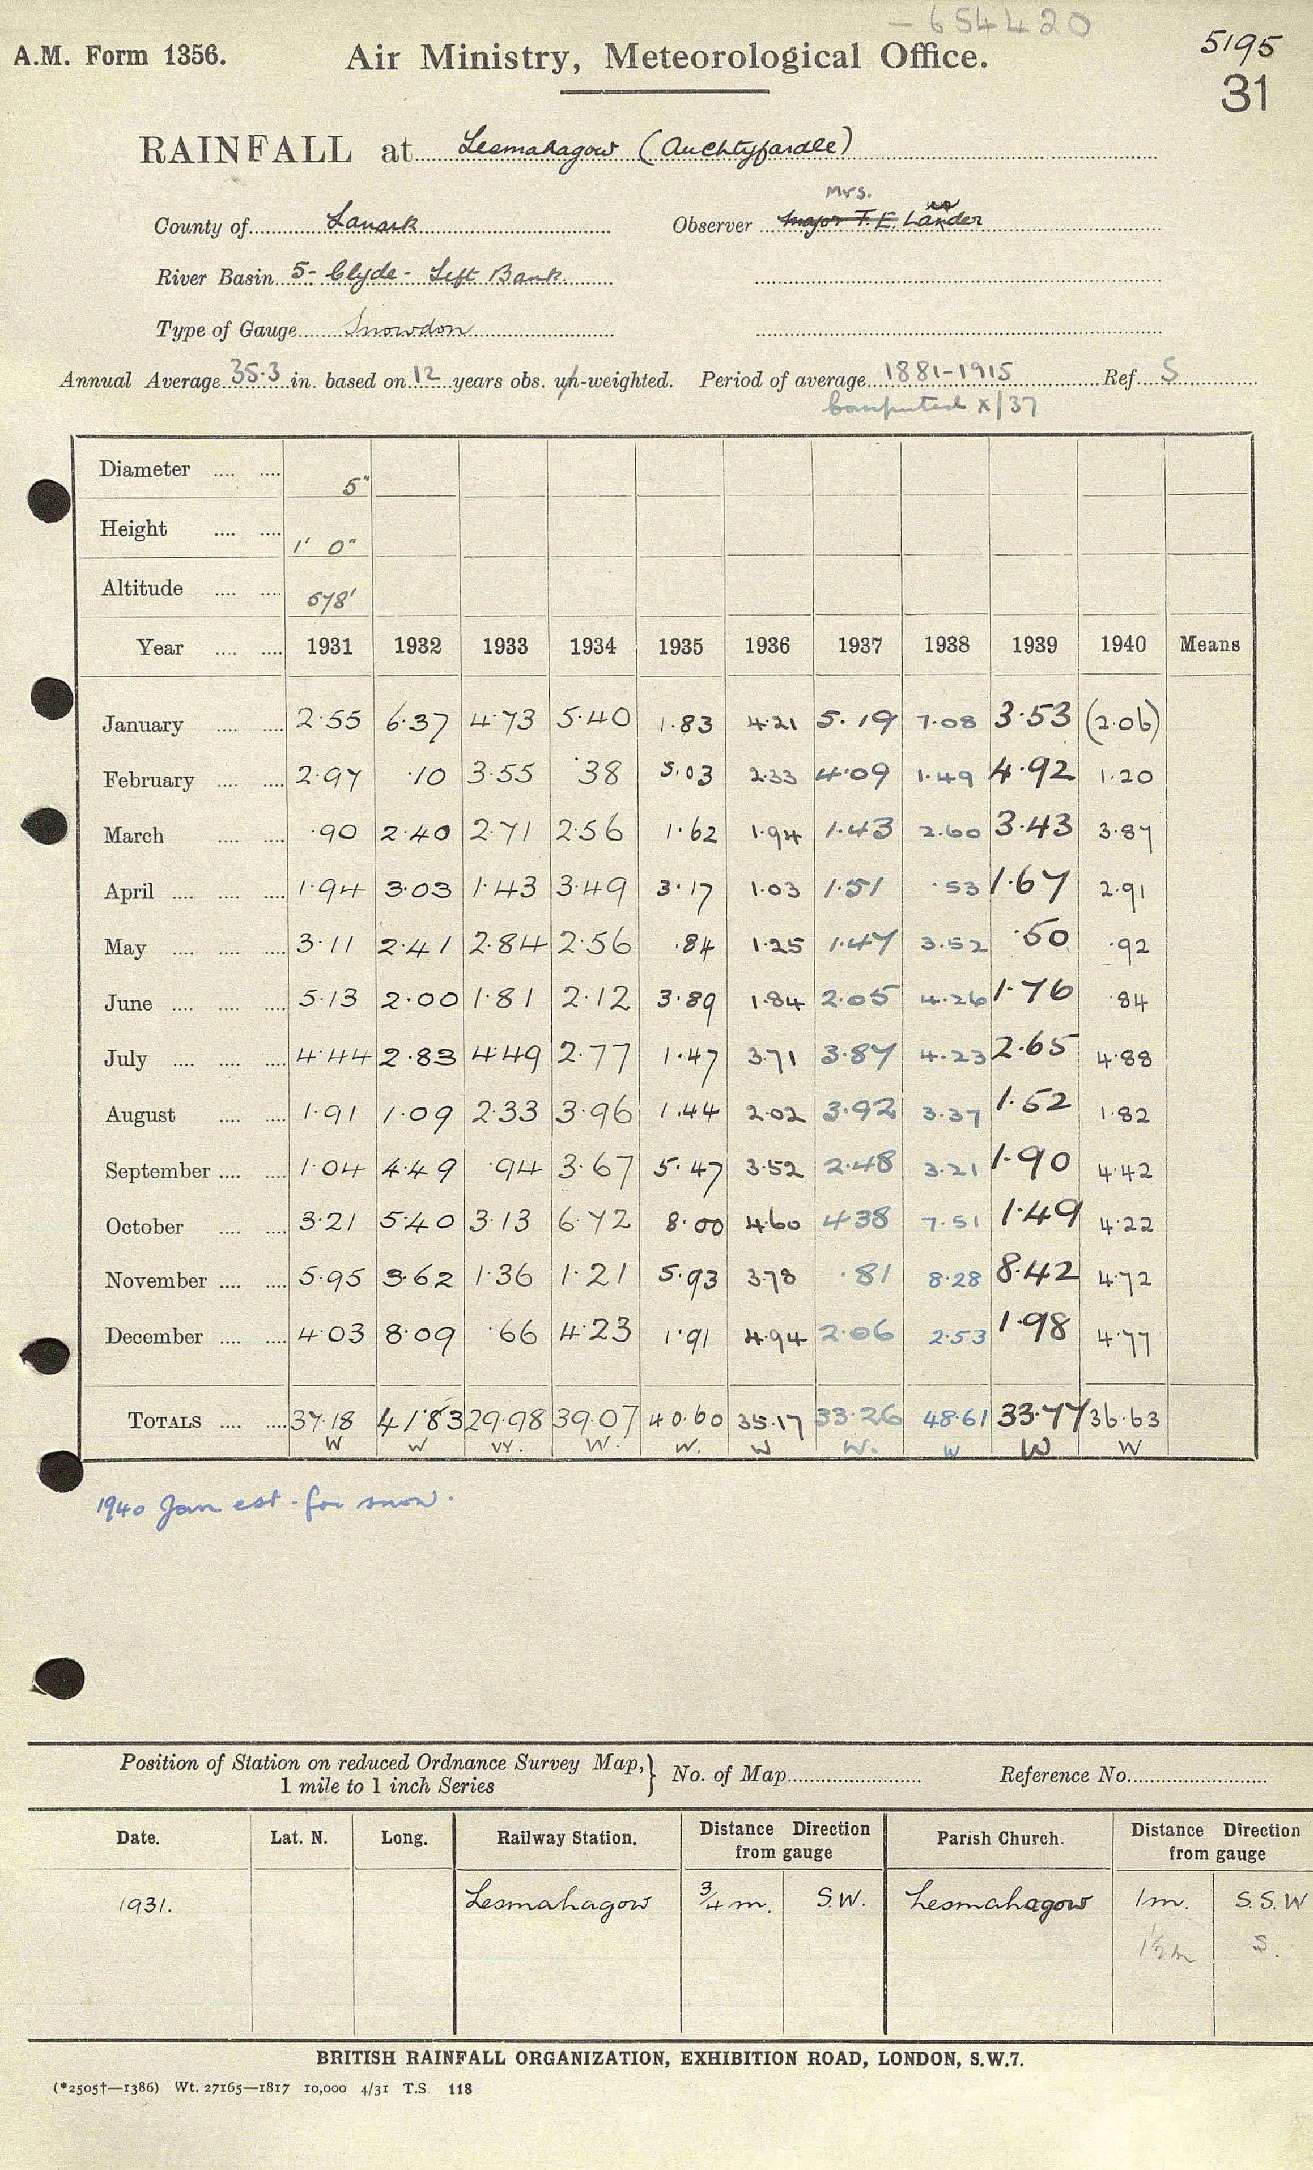 — 654420
5195
A.M. Form 1356. Air Ministry, Meteorological Office.
31
RAINFALL at Lesmahagow (Auchtyfardle)
Mrs.
County of Lanark Observer Major T. E. Lander
River Basin 5 - Clyde - Left Bank
Type of Gauge Snowdon
Annual Average 35.3 in. based on 12 years obs. un-weighted. Period of average 1881-1915 Ref. S
Computed X/37
Diameter .... .... 5"
Height .... .... 1' 0"
Altitude .... .... 578'
Year .... .... 1931 1932 1933 1934 1935 1936 1937 1938 1939 1940 Means
January .... .... 2.55 6.37 4.73 5.40 1.83 4.21 5.19 7.08 3.53 (2.06)
February .... .... 2.97 .10 3.55 .38 5.03 2.33 4.09 1.49 4.92 1.20
March .... .... .90 2.40 2.71 2.56 1.62 1.94 1.43 2.60 3.43 3.87
April .... .... .... 1.94 3.03 1.43 3.49 3.17 1.03 1.51 .53 1.67 2.91
May .... .... .... 3.11 2.41 2.84 2.56 .84 1.25 1.47 3.52 .50 .92
June .... .... .... 5.13 2.00 1.81 2.12 3.89 1.84 2.05 4.26 1.76 .84
July .... .... .... 4.44 2.83 4.49 2.77 1.47 3.71 3.87 4.23 2.65 4.88
August .... .... 1.91 1.09 2.33 3.96 1.44 2.02 3.92 3.37 1.52 1.82
September .... .... 1.04 4.49 .94 3.67 5.47 3.52 2.48 3.21 1.90 4.42
October .... .... 3.21 5.40 3.13 6.72 8.00 4.60 4.38 7.51 1.49 4.22
November .... .... 5.95 3.62 1.36 1.21 5.93 3.78 .81 8.28 8.42 4.72
December .... .... 4.03 8.09 .66 4.23 1.91 4.94 2.06 2.53 1.98 4.77
TOTALS .... .... 37.18 41.83 29.98 39.07 40.60 35.17 33.26 48.61 33.77 36.63
W W W. W. W. W W. W W W
1940 Jan est. for snow.
Position of Station on reduced Ordnance Survey Map, } No. of Map Reference No.
1 mile to 1 inch Series
Date. Lat. N. Long. Railway Station. Distance Direction from gauge Parish Church. Distance Direction from gauge
1931. Lesmahagow 3/4 m. S.W. Lesmahagow 1 m. S.S.W
1½ m S.
BRITISH RAINFALL ORGANIZATION, EXHIBITION ROAD, LONDON, S.W.7.
(*2505†—1386) Wt. 27165—1817 10,000 4/31 T.S. 118